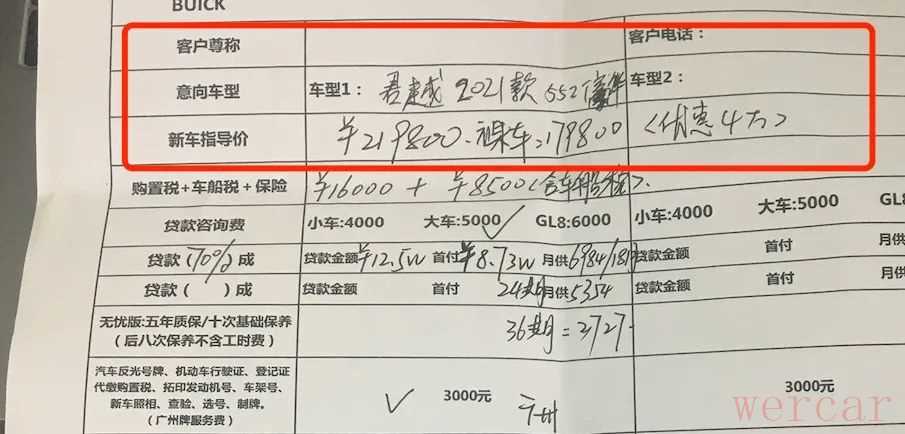 BUICK
客户尊称 客户电话：
意向车型 车型1： 君越 2021款 552豪华 车型2：
新车指导价 ¥219800. 裸车：179800 （优惠4万）
购置税+车船税+保险 ¥16000 + ¥8500（含车船税）.
贷款咨询费 小车:4000 大车:5000 ✓ GL8:6000 小车:4000 大车:5000 GL8
贷款（70%）成 贷款金额¥12.5W 首付¥8.73W 月供6984/181 贷款金额 首付 月供
贷款（ ）成 贷款金额 首付 24期月供5354 贷款金额 首付 月供
无忧版:五年质保/十次基础保养 36期=3727.
（后八次保养不含工时费）
汽车反光号牌、机动车行驶证、登记证
代缴购置税、拓印发动机号、车架号、
新车照相、查验、选号、制牌。
（广州牌服务费）
✓ 3000元 广州 3000元
wercar